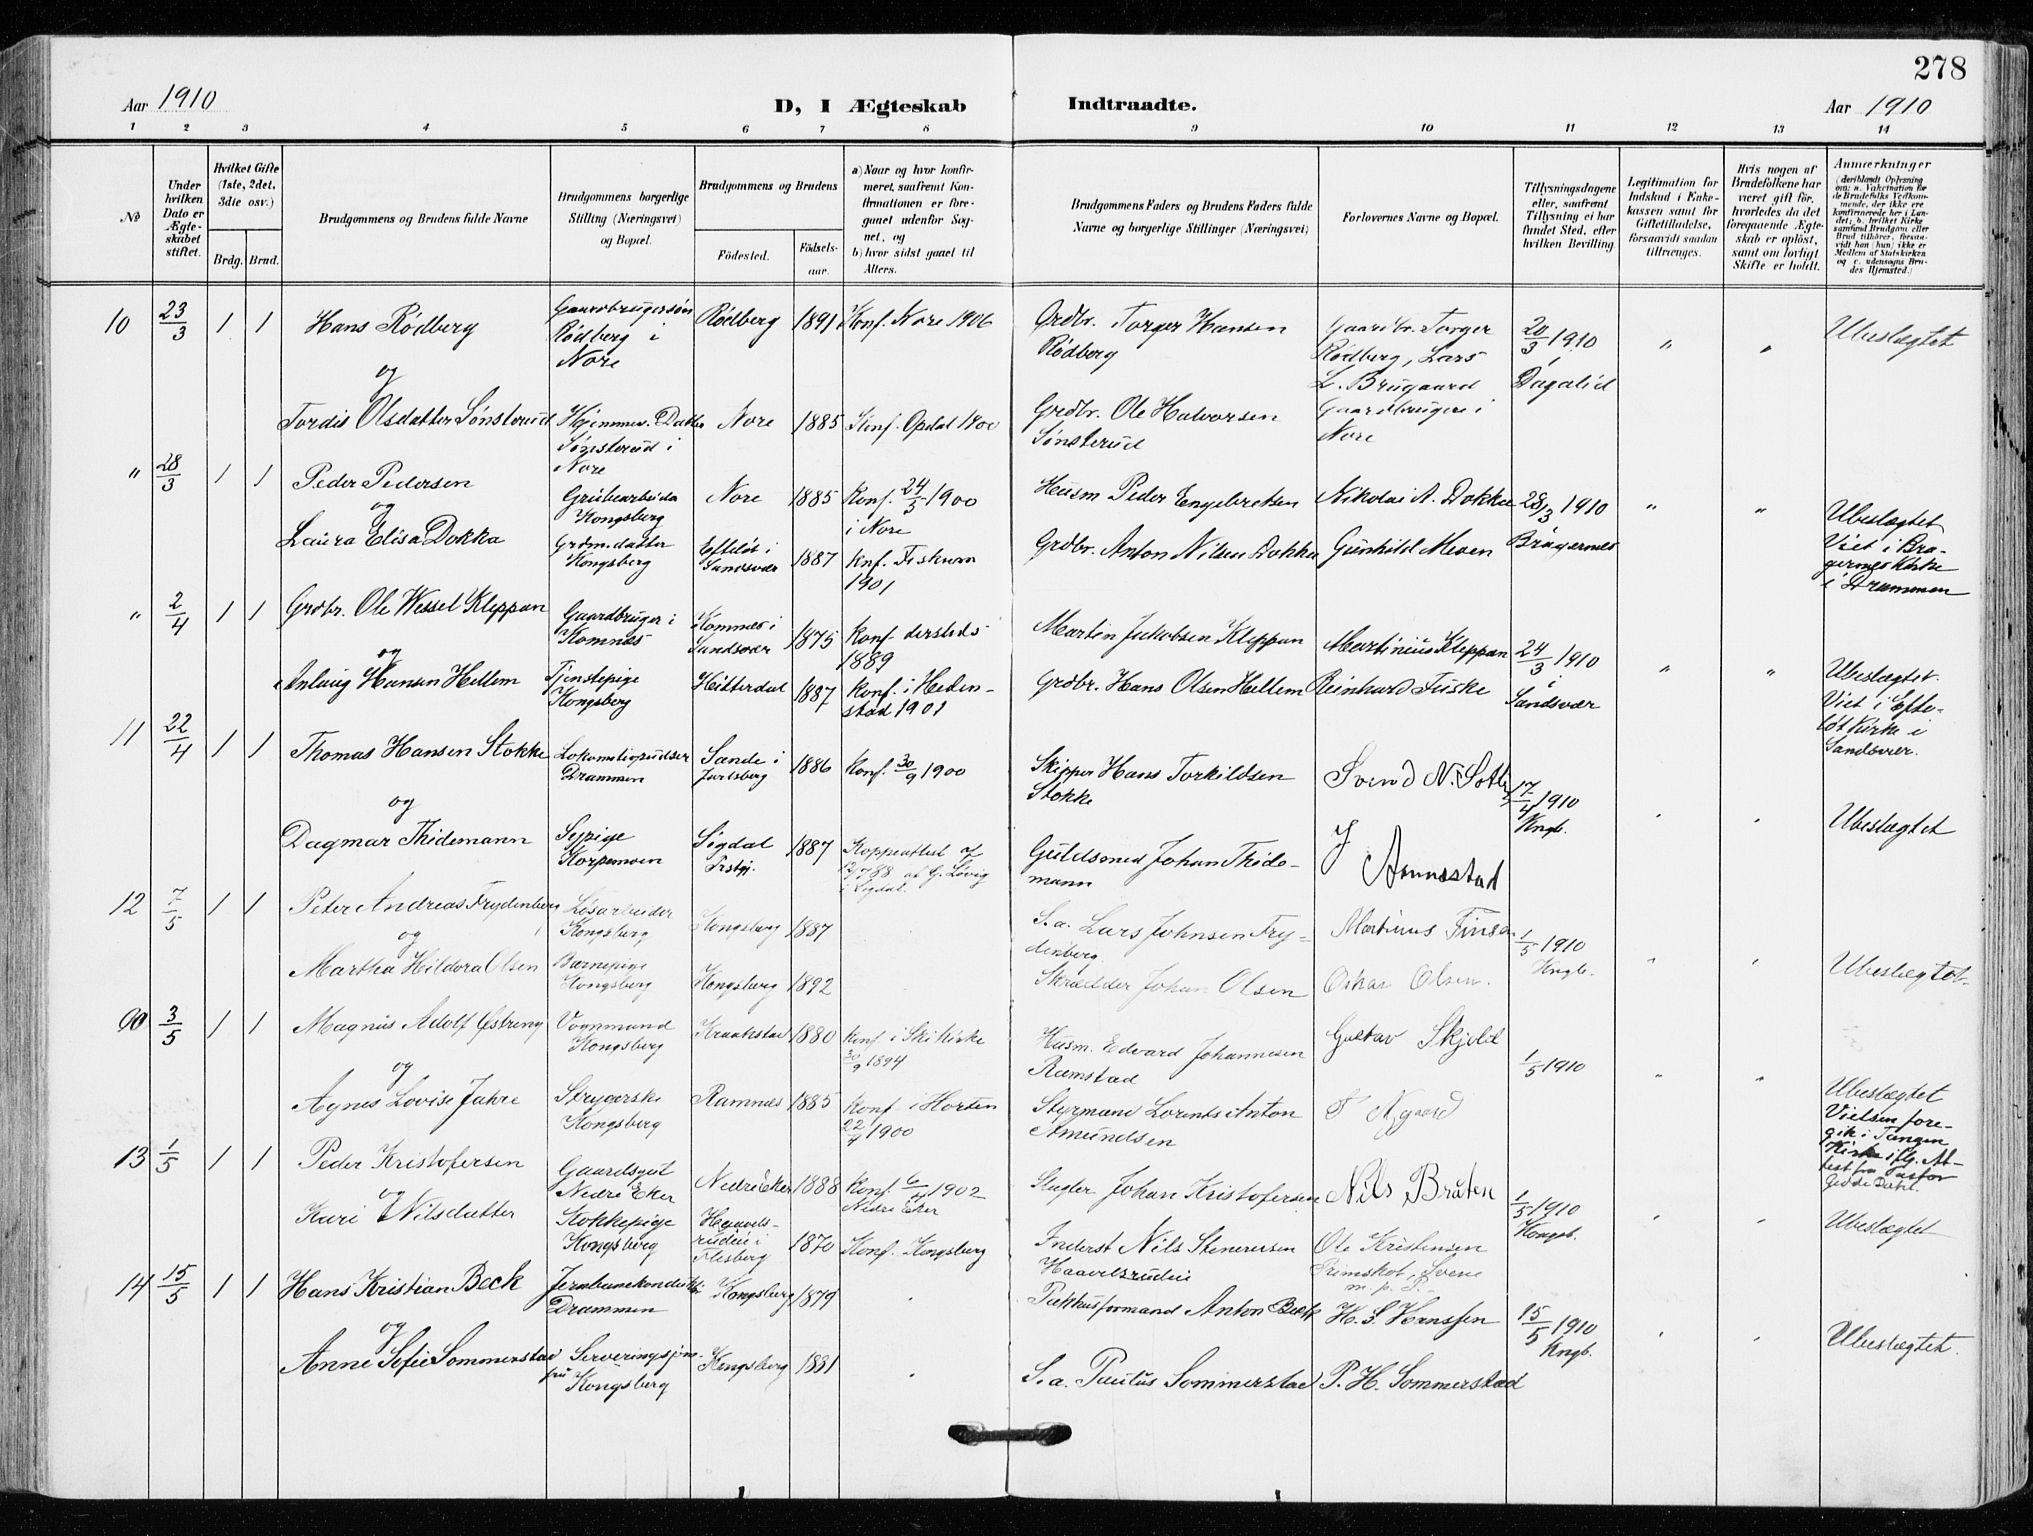 278
Aar 1910
D, I Ægteskab Indtraadte.
Aar 1910
1 2 3 4 5 6 7 8 9 10 11 12 13 14
No
Under hvilken Dato er Ægteskabet stiftet.
Hvilket Gifte (1ste, 2det, 3die osv.)
Brdg. Brud.
Brudgommens og Brudens fulde Navne
Brudgommens borgerlige Stilling (Næringsvei) og Bopæl.
Brudgommens og Brudens
Fødested. Fødsels-aar.
a) Naar og hvor konfirmeret, saafremt Konfirmationen er foregaaet udenfor Sognet, og
b) hvor sidst gaaet til Alters.
Brudgommens Faders og Brudens Faders fulde Navne og borgerlige Stillinger (Næringsvei)
Forlovernes Navne og Bopæl.
Tillysningsdagene eller, saafremt Tillysning ei har fundet Sted, efter hvilken Bevilling.
Legitimation for Indskud i Enkekassen samt for Giftetilladelse, forsaavidt saadan tiltrænges.
Hvis nogen af Brudefolkene har været gift før, hvorledes da det foregaaende Ægteskab er opløst, samt om lovligt Skifte er holdt.
Anmærkninger
(deriblandt Oplysning om: a. Vakcination for de Brudefolks Vedkommende, der ikke ere konfirmerede her i Landet; b. hvilket Kirkesamfund Brudgom eller Brud tilhører, forsaavidt han (hun) ikke er Medlem af Statskirken og c. udensogns Brudes Hjemsted.)
10 23/3 1 1 Hans Rødberg Gaardbrugersøn Rødberg i Nore Rødberg 1891 Konf. Nore 1906 Grdbr. Torger Hansen Rødberg Gaardbr. Torger Rødberg, Lars L. Brugaard 20/3 1910 i Dagalid " " Ubeslægtet
og
Tordis Olsdatter Sønsterud Hjemmev. Datter Sønsterud i Nore Nore 1885 Konf. Opdal 1900 Grdbr. Ole Halvorsen Sønsterud Gaardbrugere i Nore
" 28/3 1 1 Peder Pedersen Grubearbeider Kongsberg Nore 1885 Konf. 24/5 1900 i Nore Husm Peder Engebretsen Nikolai A. Dokka 28/3 1910 Bragernes " " Ubeslægtet Viet i Bragernes Kirke i Drammen
og
Laura Elisa Dokka Grdm.datter Kongsberg Efteløt i Sandsvær 1887 Knf. Fiskum 1901 Grdbr. Anton Nilsen Dokka Gunhild Moen
" 2/4 1 1 Grdbr. Ole Wessel Kleppan Gaardbruger i Komnæs Komnæs i Sandsvær 1875 Konf. dersteds 1889 Martin Jakobsen Kleppan Martinius Kleppan 24/3 1910 i Sandsvær " " Ubeslægtet. Viet i Efteløt Kirke i Sandsvær.
og
Anlaug Hansen Hellem Tjenstepige Kongsberg Hitterdal 1887 Konf. i Hedenstad 1901 Grdbr. Hans Olsen Hellem Reinhard Fuske
11 22/4 1 1 Thomas Hansen Stokke Lokomotivpudser Drammen Sande i Jarlsberg 1886 Konf. 30/9 1900 Skipper Hans Torkildsen Stokke Svend N. 17/4 1910 Kngb. Ubeslægtet
og
Dagmar Thidemann Sypige Korpemoen Sigdal Prstgj. 1887 Koppeattest af G. Løvig i Sigdal. Guldsmed Johan Thidemann J Aonnestad
12 7/5 1 1 Peter Andreas Frydenberg Løsarbeider Kongsberg Kongsberg 1887 S.a. Lars Johnsen Frydenberg Martinus 1/5 1910 Kngb. Ubeslægtet.
og
Martha Hildora Olsen Barnepige Kongsberg Kongsberg 1892 Skrædder Johan Olsen Oskar Olsen.
3/5 1 1 Magnus Adolf Østreng Vognmand Kongsberg Kraakstad 1880 Konf i Ski Kirke 30/9 1894 Husm. Edvard Johannesen Ramstad Gustav 1/5 1910 Ubeslægtet
og
Agnes Lovise Jahre Strygerske Kongsberg Ramnæs 1885 Konf. i Horten 22/4 1900 Styrmand Lorents Anton Amundsen T Nygaard Vielsen foregik i Tangen Kirke iflg. Attest fra Pastor Gedde Dahl.
13 1/5 1 1 Peder Kristofersen Gaardsgut Nedre Eker Nedre Eker 1888 Konf. 6/4 1902 Nedre Eker Slagter Johan Kristofersen Nils Bråten 1/5 1910 Kongsb. Ubeslægtet
og
Kari Nilsdatter Kokkepige Kongsberg Haavelsrudeie i Flesberg 1870 Konf. Kongsberg Inderst Nils Stenersen Haavelsrudeie Ole Kristensen Svene m.p.P.
14 15/5 1 1 Hans Kristian Beck Jernbanekonduktør Drammen Kongsberg 1879 Pakhusformand Anton Beck H. S. Hanssen 15/5 1910 Kngb. Ubeslægtet.
og
Anne Sofie Sommerstad Serveringsjomfru Kongsberg Kongsberg 1881 S.a. Paulus Sommerstad P. H. Sommerstad